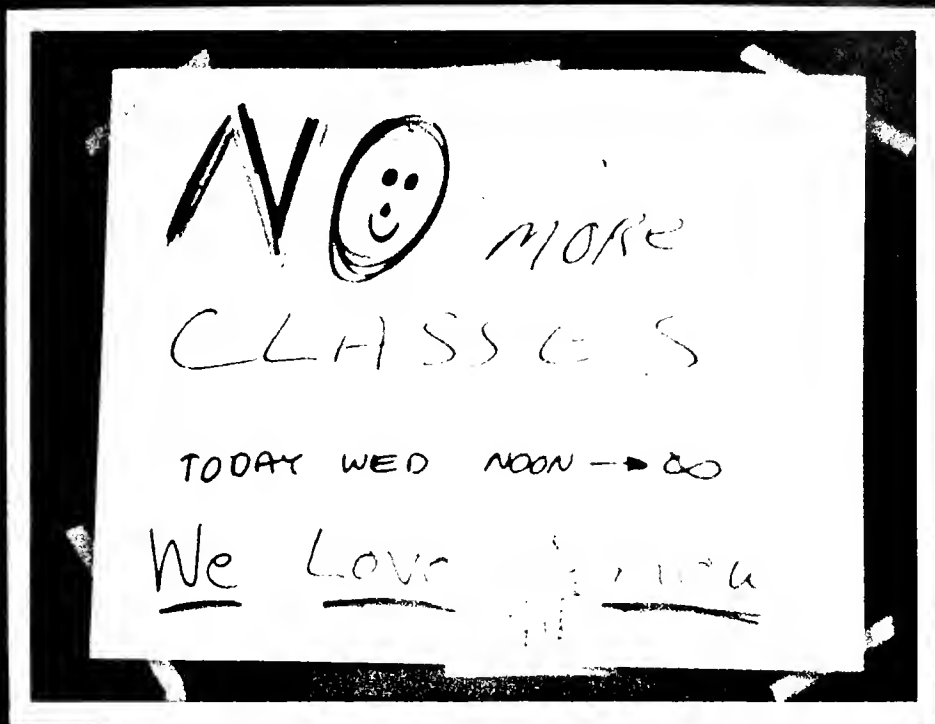 NO MORE
CLASSES
TODAY WED NOON → ∞
We Love